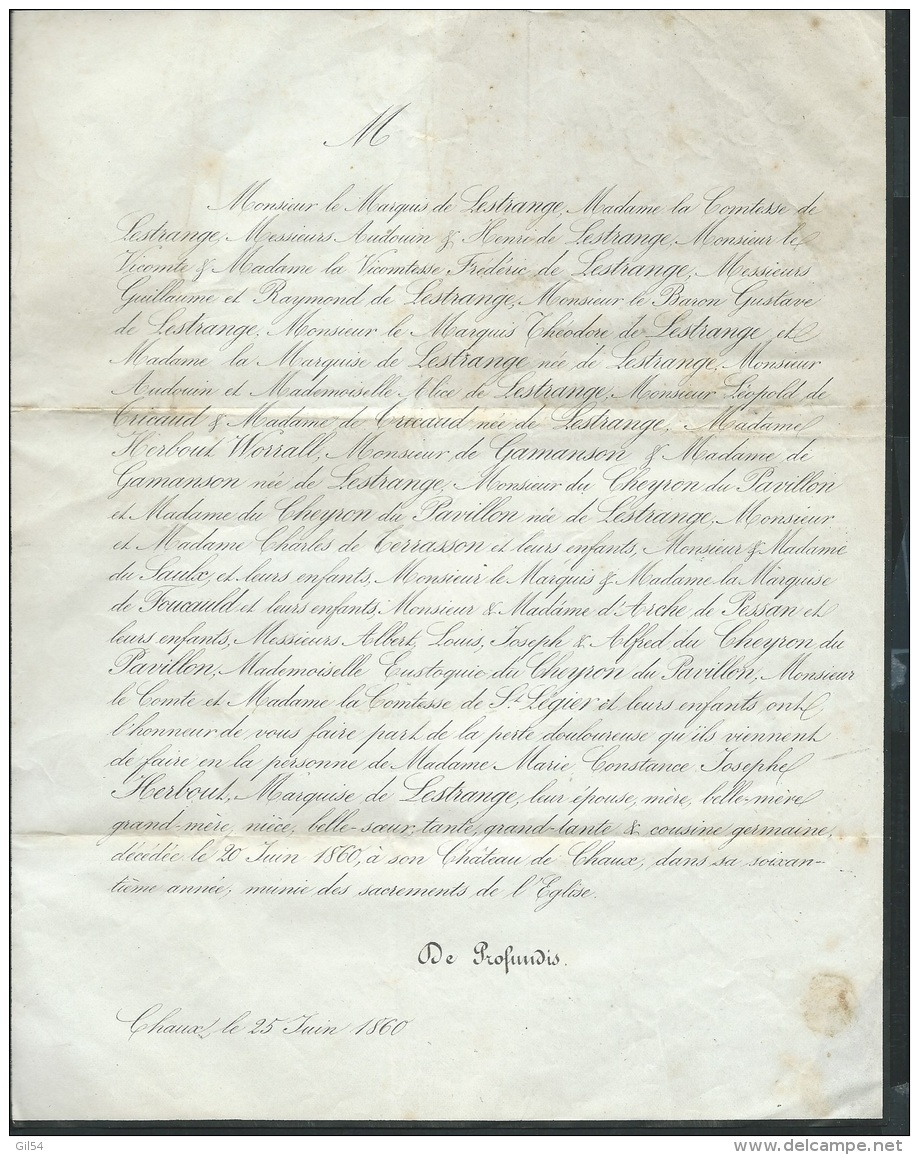 M
Monsieur le Marquis de Lestrange, Madame la Comtesse de
Lestrange, Messieurs Audouin & Henri de Lestrange, Monsieur le
Vicomte & Madame la Vicomtesse Frédéric de Lestrange, Messieurs
Guillaume et Raymond de Lestrange, Monsieur le Baron Gustave
de Lestrange, Monsieur le Marquis Théodore de Lestrange et
Madame la Marquise de Lestrange née de Lestrange, Monsieur
Audouin et Mademoiselle Alice de Lestrange, Monsieur Léopold de
Tricaud & Madame de Tricaud née de Lestrange, Madame
Herbout Worrall, Monsieur de Gamanson & Madame de
Gamanson née de Lestrange, Monsieur du Cheyron du Pavillon
et Madame du Cheyron du Pavillon née de Lestrange, Monsieur
et Madame Charles de Terrasson et leurs enfants, Monsieur & Madame
du Saulx, et leurs enfants, Monsieur le Marquis & Madame la Marquise
de Foucauld et leurs enfants, Monsieur & Madame d'Arche de Pessan et
leurs enfants, Messieurs Albert, Louis, Joseph & Alfred du Cheyron du
Pavillon, Mademoiselle Eustoquie du Cheyron du Pavillon, Monsieur
le Comte et Madame la Comtesse de St. Légier et leurs enfants ont
l'honneur de vous faire part de la perte douloureuse qu'ils viennent
de faire en la personne de Madame Marie Constance Josephe
Herbout, Marquise de Lestrange, leur épouse, mère, belle-mère
grand-mère, nièce, belle-sœur, tante, grand-tante & cousine germaine,
décédée le 20 Juin 1860, à son Château de Chaux, dans sa soixan-
tième année, munie des sacrements de l'Eglise.
De Profundis.
Chaux, le 25 Juin 1860
Gil54
www.delcampe.net